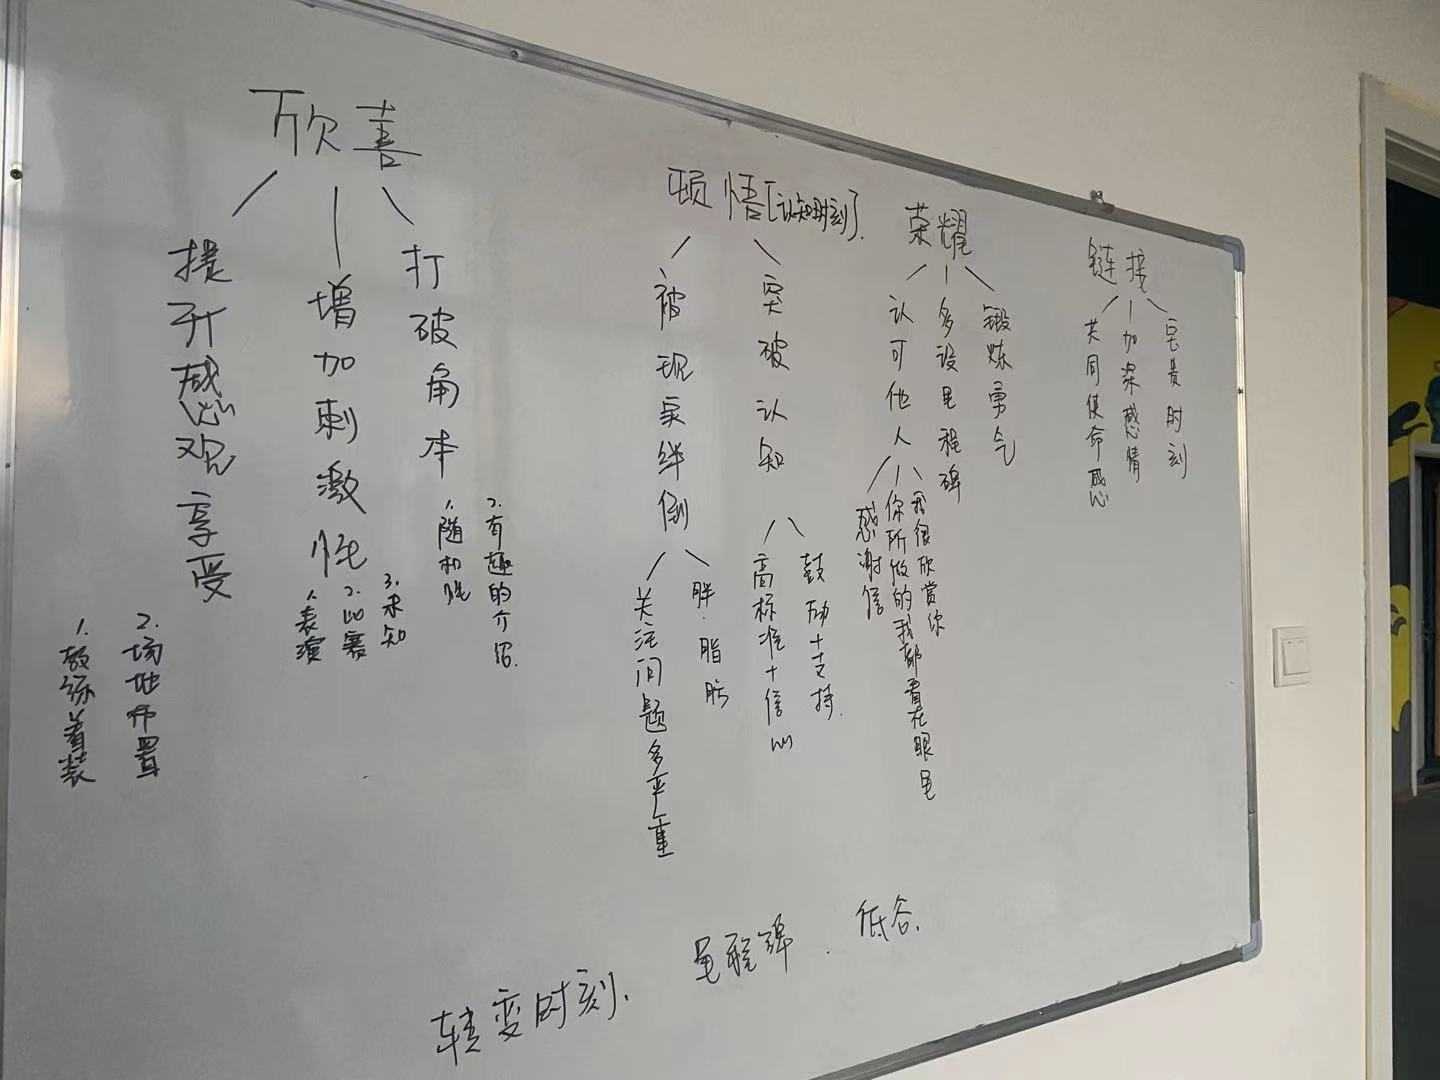 欣喜
提升感观享受
1.教练着装
2.场地布置
增加刺激性
1.表演
2.比赛
3.未知
打破剧本
1.随机性
2.有趣的介绍.
顿悟[认知时刻].
被现实绊倒
关注问题多严重
胖.脂肪
突破认知
高标准+信心
鼓励+支持.
荣耀
认可他人
感谢信
你所做的我都看在眼里
我很欣赏你
多设里程碑
锻炼勇气
链接
共同使命感
加深感情
宝贵时刻
转变时刻. 里程碑. 低谷.